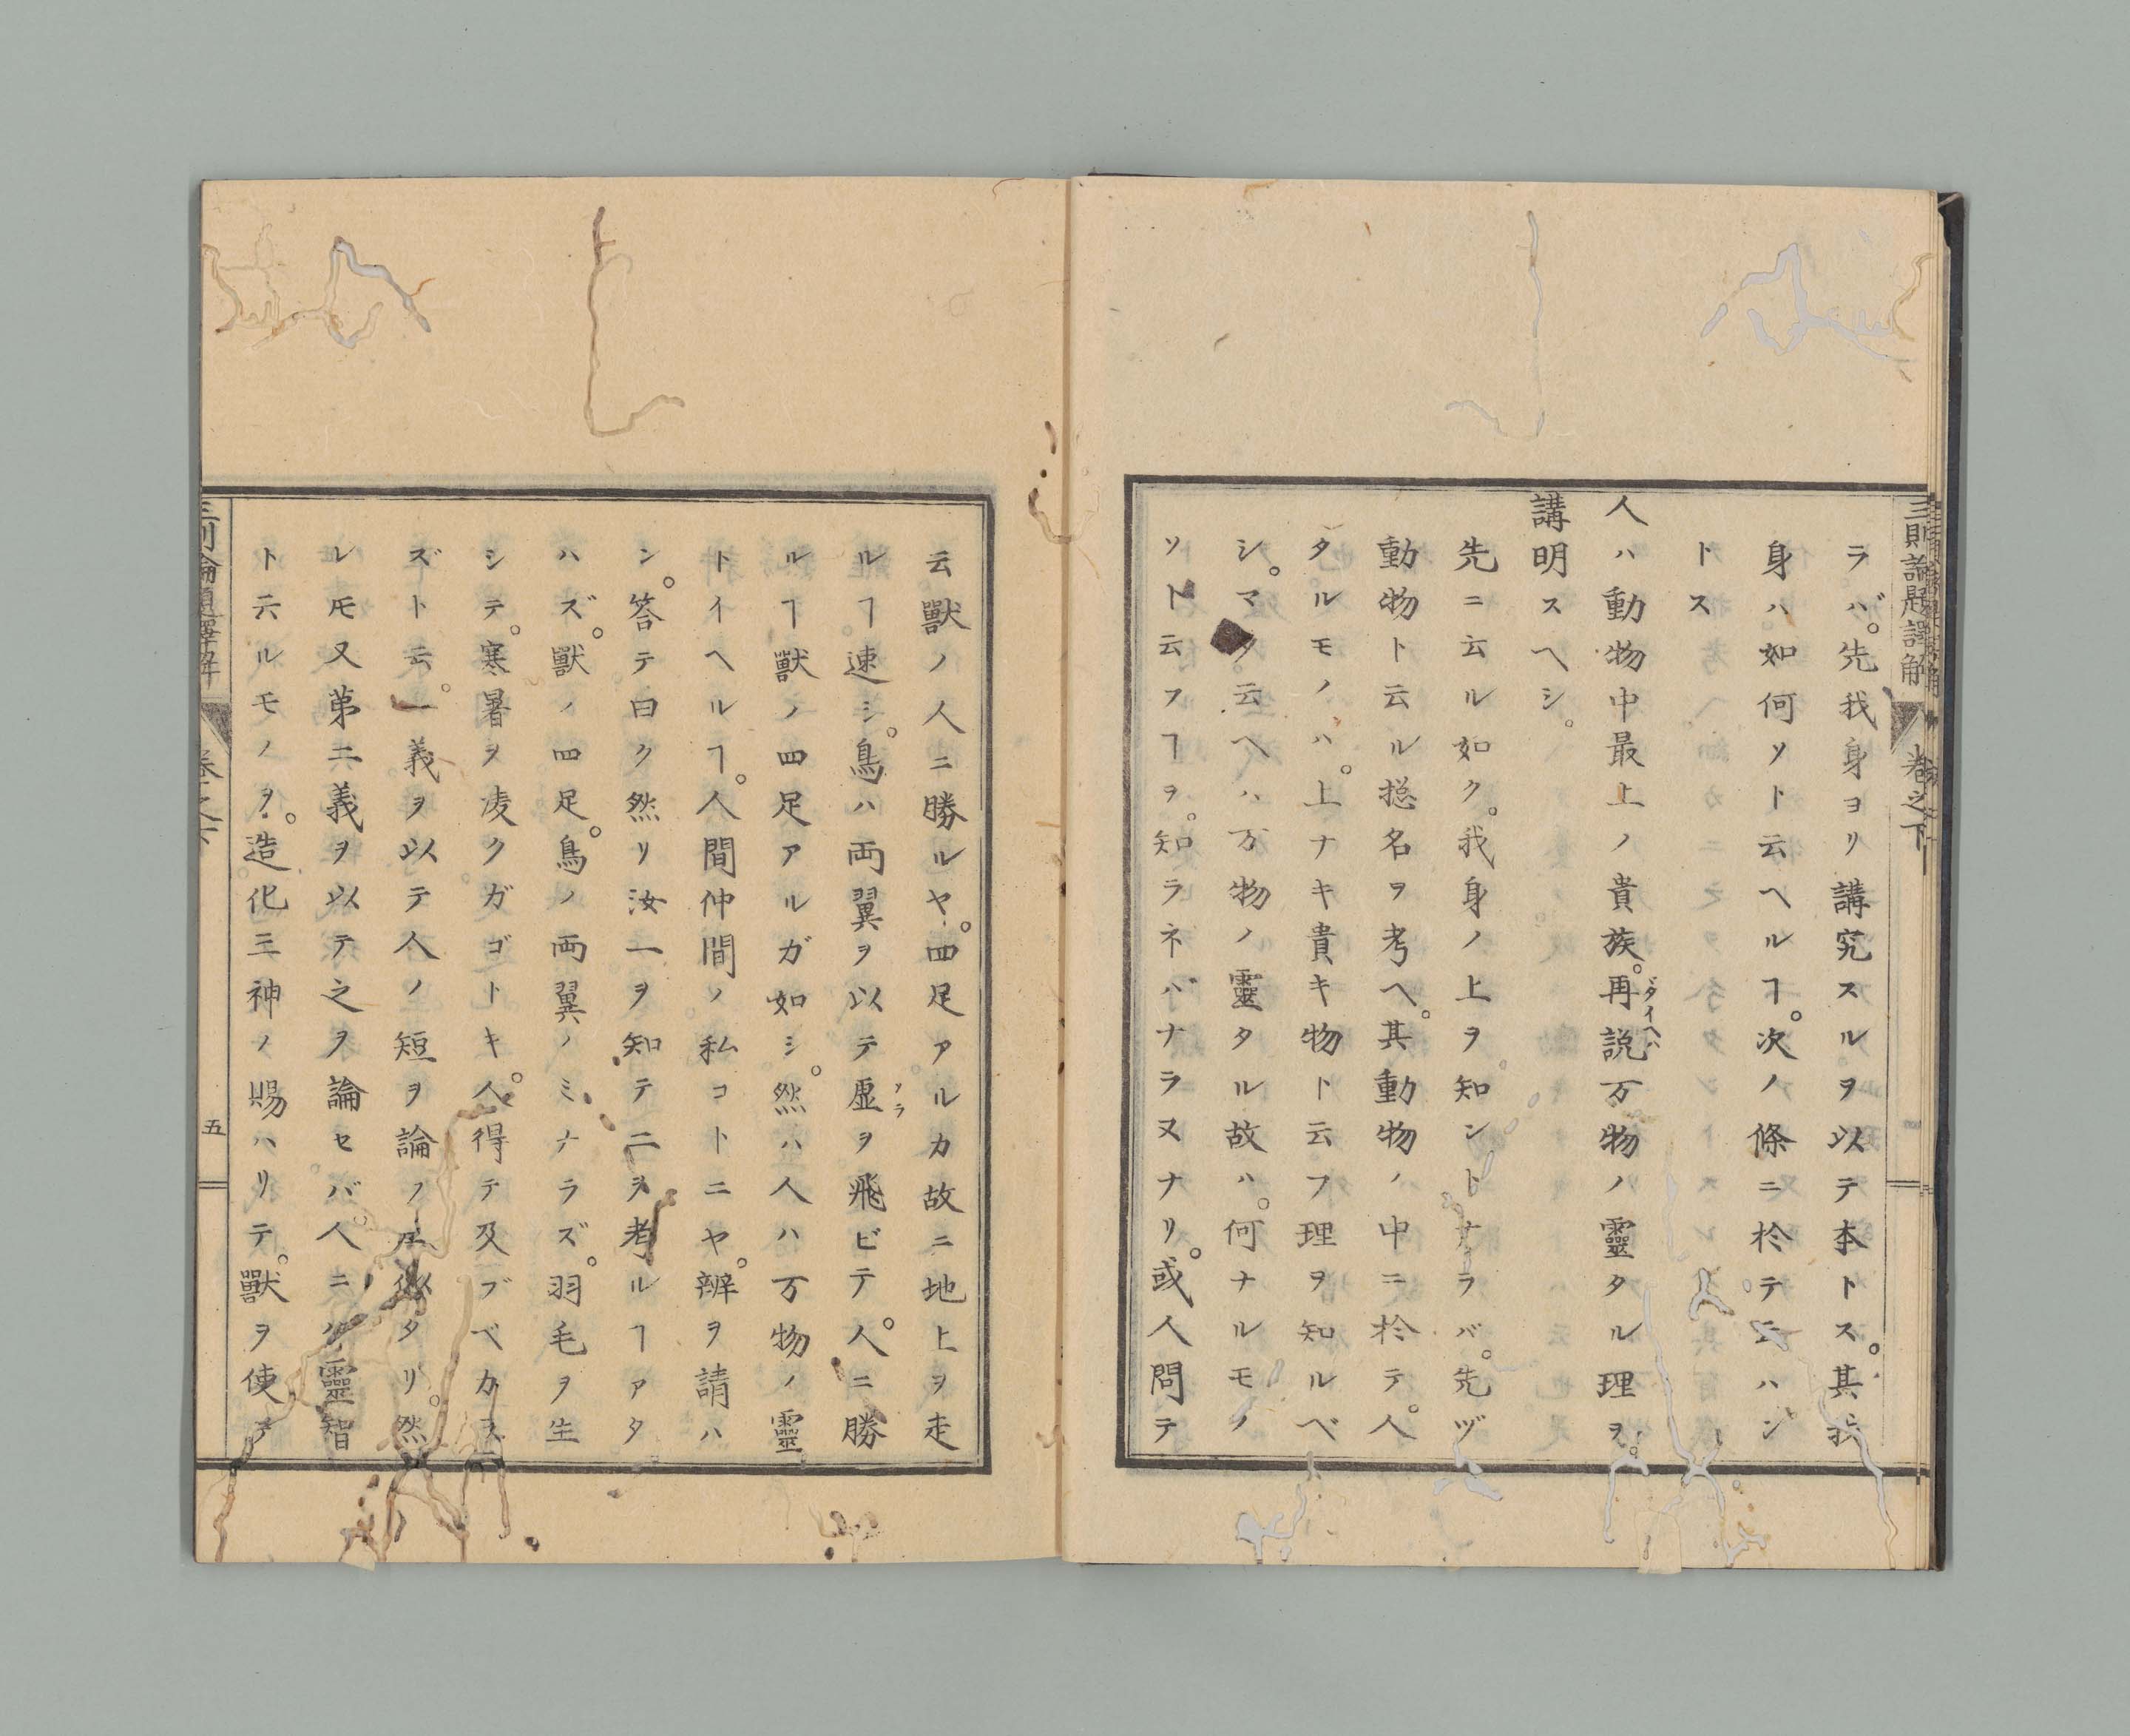 三則論題譯解 卷之下
ラバ。先我身ヨリ講究スルヲ以テ本トス。其我
身ハ如何ソト云ヘルヿ。次ノ條ニ於テ云ハン
トス
人ハ動物中最上ノ貴族。再説万物ノ靈タル理ヲ。
講明スヘシ。
先ニ云ル如ク。我身ノ上ヲ知ントナラバ。先ヅ
動物ト云ル搃名ヲ考ヘ。其動物ノ中ニ於テ。人
タルモノハ。上ナキ貴キ物ト云フ理ヲ知ルベ
シ。マタ云ヘハ万物ノ靈タル故ハ。何ナルモノ
ソト云フヿヲ。知ラネバナラヌナリ。或人問テ
云獸ノ人ニ勝ルヤ。四足アルカ故ニ地上ヲ走
ルヿ速シ。鳥ハ両翼ヲ以テ虚ヲ飛ビテ。人ニ勝
ルヿ獸ノ四足アルガ如シ。然ハ人ハ万物ノ靈
トイヘルヿ。人間仲間ノ私コトニヤ。辨ヲ請ハ
ン。答テ曰ク然リ汝一ヲ知テ二ヲ考ルヿアタ
ハズ。獸ノ四足。鳥ノ両翼ノミナラズ。羽毛ヲ生
シテ。寒暑ヲ凌クガゴトキ。人得テ及ブベカラ
ズト云。一義ヲ以テ人ノ短ヲ論ノ似タリ。然
レ𪜈又苐二義ヲ以テ之ヲ論セバ。人ニハ靈智
ト云ルモノヲ。造化三神ノ賜ハリテ。獸ヲ使ヒ
三則論題譯解 卷之下
五